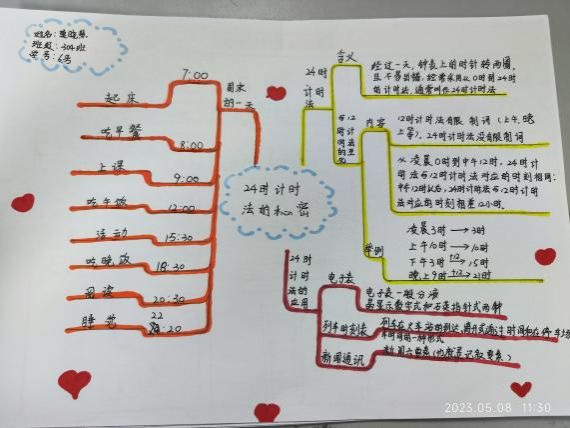 班级：304班
学号：6号
7:00
起床
吃早餐
8:00
上课
9:00
吃午饭
12:00
活动
15:30
吃晚饭
18:30
阅读
20:30
睡觉
周末
的一天
24时计时
法的秘密
24时
计时
法
含义
经过一天，钟表上的时针转两圈，
且不易出错，经常采用从0时到24时
的计时法，通常叫作24时计时法
与12
时计
时法的
内容
12时计时法有限制词（上午、晚
上等），24时计时法没有限制词
从凌晨0时到中午12时，24时计
时法与12时计时法对应的时刻相同；
中午12时以后，24时计时法与12时计时
法对应的时刻相差12小时。
举例
凌晨3时→3时
上午10时→10时
下午3时+12→15时
晚上9时+12→21时
24时
计时
法的
应用
电子表
电子表一般分液
晶显示数字式和石英指针式两钟
列车时刻表
列车在火车站的到达、
时间和在停车场
新闻通讯
2023.05.08 11:30